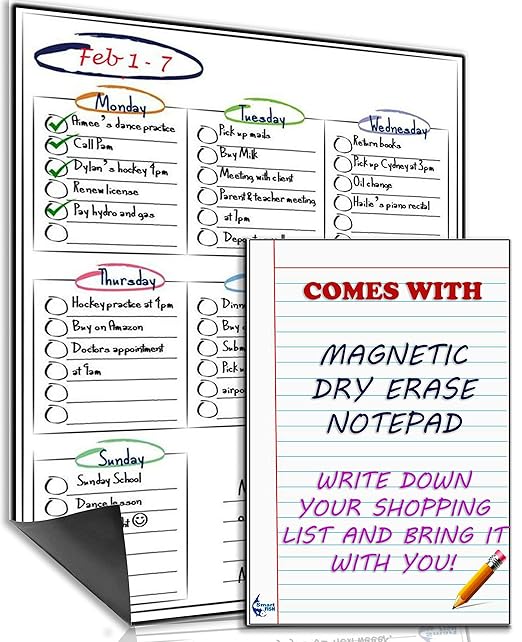 Feb 1 - 7
Monday
Aimee's dance practice
Call Pam
Dylan's hockey 4pm
Renew license
Pay hydro and gas
Tuesday
Pick up mails
Buy Milk
Meeting with client
Parent & teacher meeting
at 1pm
Wednesday
Return books
Pick up Cydney at 3pm
Oil change
Hailie's piano recital
Thursday
Hockey practice at 4pm
Buy on Amazon
Doctors appointment
at 9am
Buy
Pick
Sunday
Sunday School
Dance lesson
COMES WITH
MAGNETIC
DRY ERASE
NOTEPAD
WRITE DOWN
YOUR SHOPPING
LIST AND BRING IT
WITH YOU!
Smart
FISH